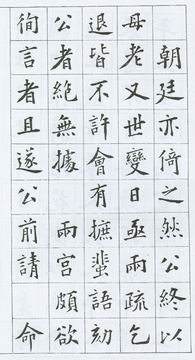 朝廷亦倚之然公終以
母老又世變日亟兩疏乞
退皆不許會有摭蜚語劾
公者絕無據兩宮頗欲
徇言者且遂公前請命